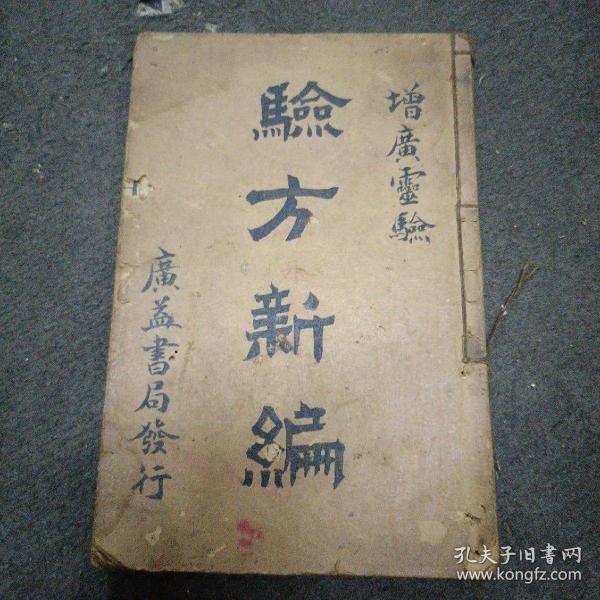 增廣靈驗
驗方新編
廣益書局發行
孔夫子旧书网
www.kongfz.com